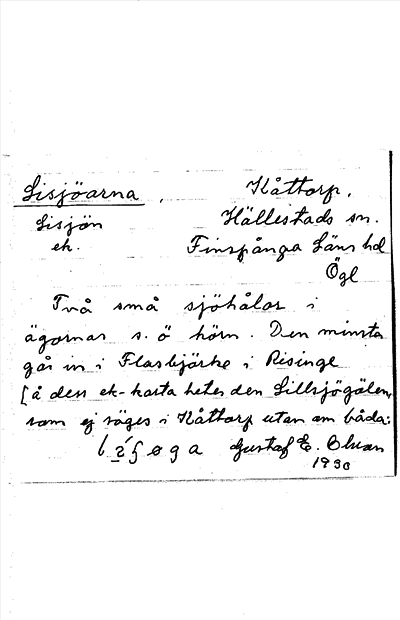 Lisjöarna, Kåttorp,
Lisjön Hällestads sn.
ek. Finspånga Läns hd
Ögl
Två små sjöhålor i
ägornas s.ö hörn. Den minsta
går in i Flasbjörke i Risinge
[å dess ek-karta heter den Lillsjögölen,
som ej säges i Kåttorp utan om båda:
Gustaf E.
1930